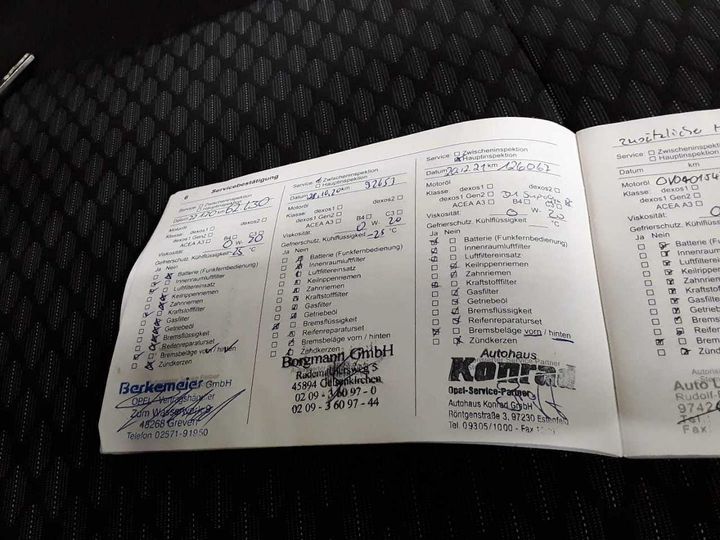 6 Servicebestätigung
Service: Zwischeninspektion
Hauptinspektion
Datum km 62130
Motoröl
Klasse: dexos1 dexos2
dexos1 Gen2
ACEA A3 B4 C3
Viskosität 0 W- 20
Gefrierschutz, Kühlflüssigkeit -25 °C
Ja Nein
Batterie (Funkfernbedienung)
Innenraumluftfilter
Luftfiltereinsatz
Keilrippenriemen
Zahnriemen
Kraftstofffilter
Gasfilter
Getriebeöl
Bremsflüssigkeit
Reifenreparaturset
Bremsbeläge vorn / hinten
Zündkerzen
Berkemeier GmbH
OPEL-Vertragshändler
Zum Wasserwerk
48268 Greven
Telefon 02571-91950
Service: Zwischeninspektion
Hauptinspektion
Datum 21.10.20 km 92653
Motoröl
Klasse: dexos1 dexos2
dexos1 Gen2
ACEA A3 B4 C3
Viskosität 0 W- 20
Gefrierschutz, Kühlflüssigkeit -25 °C
Ja Nein
Batterie (Funkfernbedienung)
Innenraumluftfilter
Luftfiltereinsatz
Keilrippenriemen
Zahnriemen
Kraftstofffilter
Gasfilter
Getriebeöl
Bremsflüssigkeit
Reifenreparaturset
Bremsbeläge vorn / hinten
Zündkerzen
Borgmann GmbH
45894 Gelsenkirchen
02 09 - 3 60 97-0
02 09 - 3 60 97-44
Service: Zwischeninspektion
Hauptinspektion
Datum 20.12.21 km 126067
Motoröl
Klasse: dexos1 dexos2
dexos1 Gen2
ACEA A3 B4 C3
Viskosität 0 W- 20
Gefrierschutz, Kühlflüssigkeit °C
Ja Nein
Batterie (Funkfernbedienung)
Innenraumluftfilter
Luftfiltereinsatz
Keilrippenriemen
Zahnriemen
Kraftstofffilter
Gasfilter
Getriebeöl
Bremsflüssigkeit
Reifenreparaturset
Bremsbeläge vorn / hinten
Zündkerzen
Autohaus
Konrad
Opel-Service-Partner
Autohaus Konrad GmbH
Röntgenstraße 3, 97230 Estenfeld
Tel. 09305/1000 - Fax
zusätzliche
Service: Zwischeninspektion
Hauptinspektion
Datum km
Motoröl
Klasse: dexos1
dexos1 Gen2
ACEA A3
Viskosität
Gefrierschutz, Kühl
Ja Nein
Batterie
Innenraum
Luftfilter
Keilrippen
Zahnriem
Kraftstoff
Gasfilter
Getrieb
Bremsf
Reifen
Brems
Zündk
Auto
Rudolf-
9742
Tel.
Fax